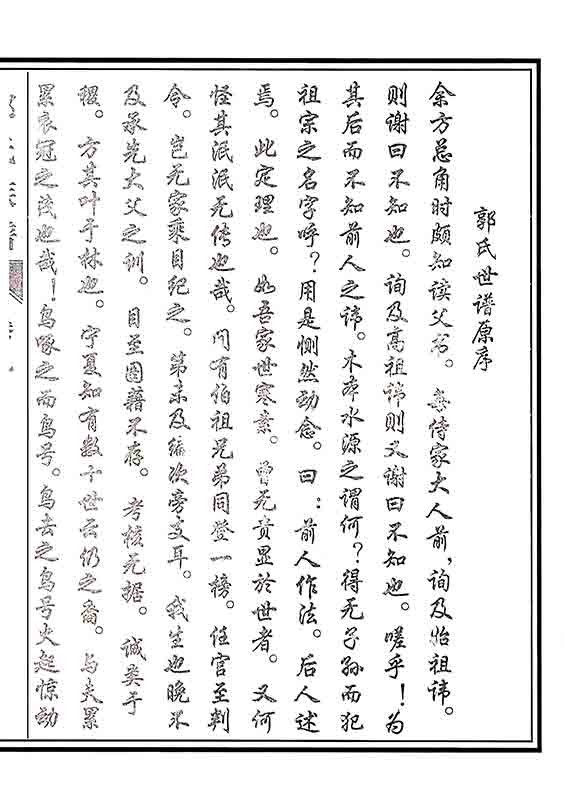 郭氏世谱原序
余方总角时颇知读父书。每侍家大人前，询及始祖讳。
则谢曰不知也。询及高祖讳则又谢曰不知也。嗟乎！为
其后而不知前人之讳。木本水源之谓何？得无子孙而犯
祖宗之名字呼？用是恻然动念。曰：前人作法。后人述
焉。此定理也。如吾家世寒素。曾无贵显於世者。又何
怪其泯泯无传也哉。间有伯祖兄弟同登一榜。任官至判
令。岂无家乘目纪之。第未及编次旁支耳。我生也晚不
及承先大父之训。目至图藉不存。考核无据。诚类于
稷。方其叶于林也。宁夏知有数十世云仍之裔。与夫累
累衣冠之茂也哉！鸟啄之而鸟号。鸟去之鸟号火起惊动